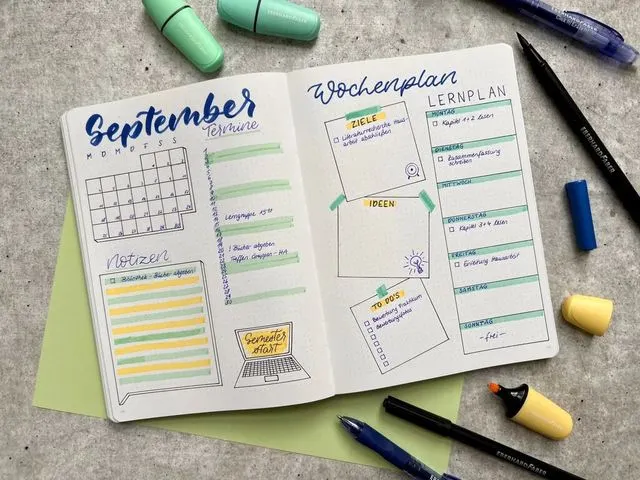 September
Termine
M D M D F S S
Lerngruppe 15 Uhr
Bücher abgeben
Treffen Gruppen-HA
Notizen
Bibliothek - Bücher abgeben
Semester
start
Wochenplan
ZIELE
Literaturrecherche Haus-
arbeit abschließen
IDEEN
TO DO'S
Bewerbung Praktikum
Bewerbungsfotos
LERNPLAN
MONTAG
Kapitel 1+2 lesen
DIENSTAG
Zusammenfassung
schreiben
MITTWOCH
DONNERSTAG
Kapitel 3+4 lesen
FREITAG
Einleitung Hausarbeit
SAMSTAG
SONNTAG
-frei-
EBERHARD FABER
EBERHARD FABER
EBERHARD FABER